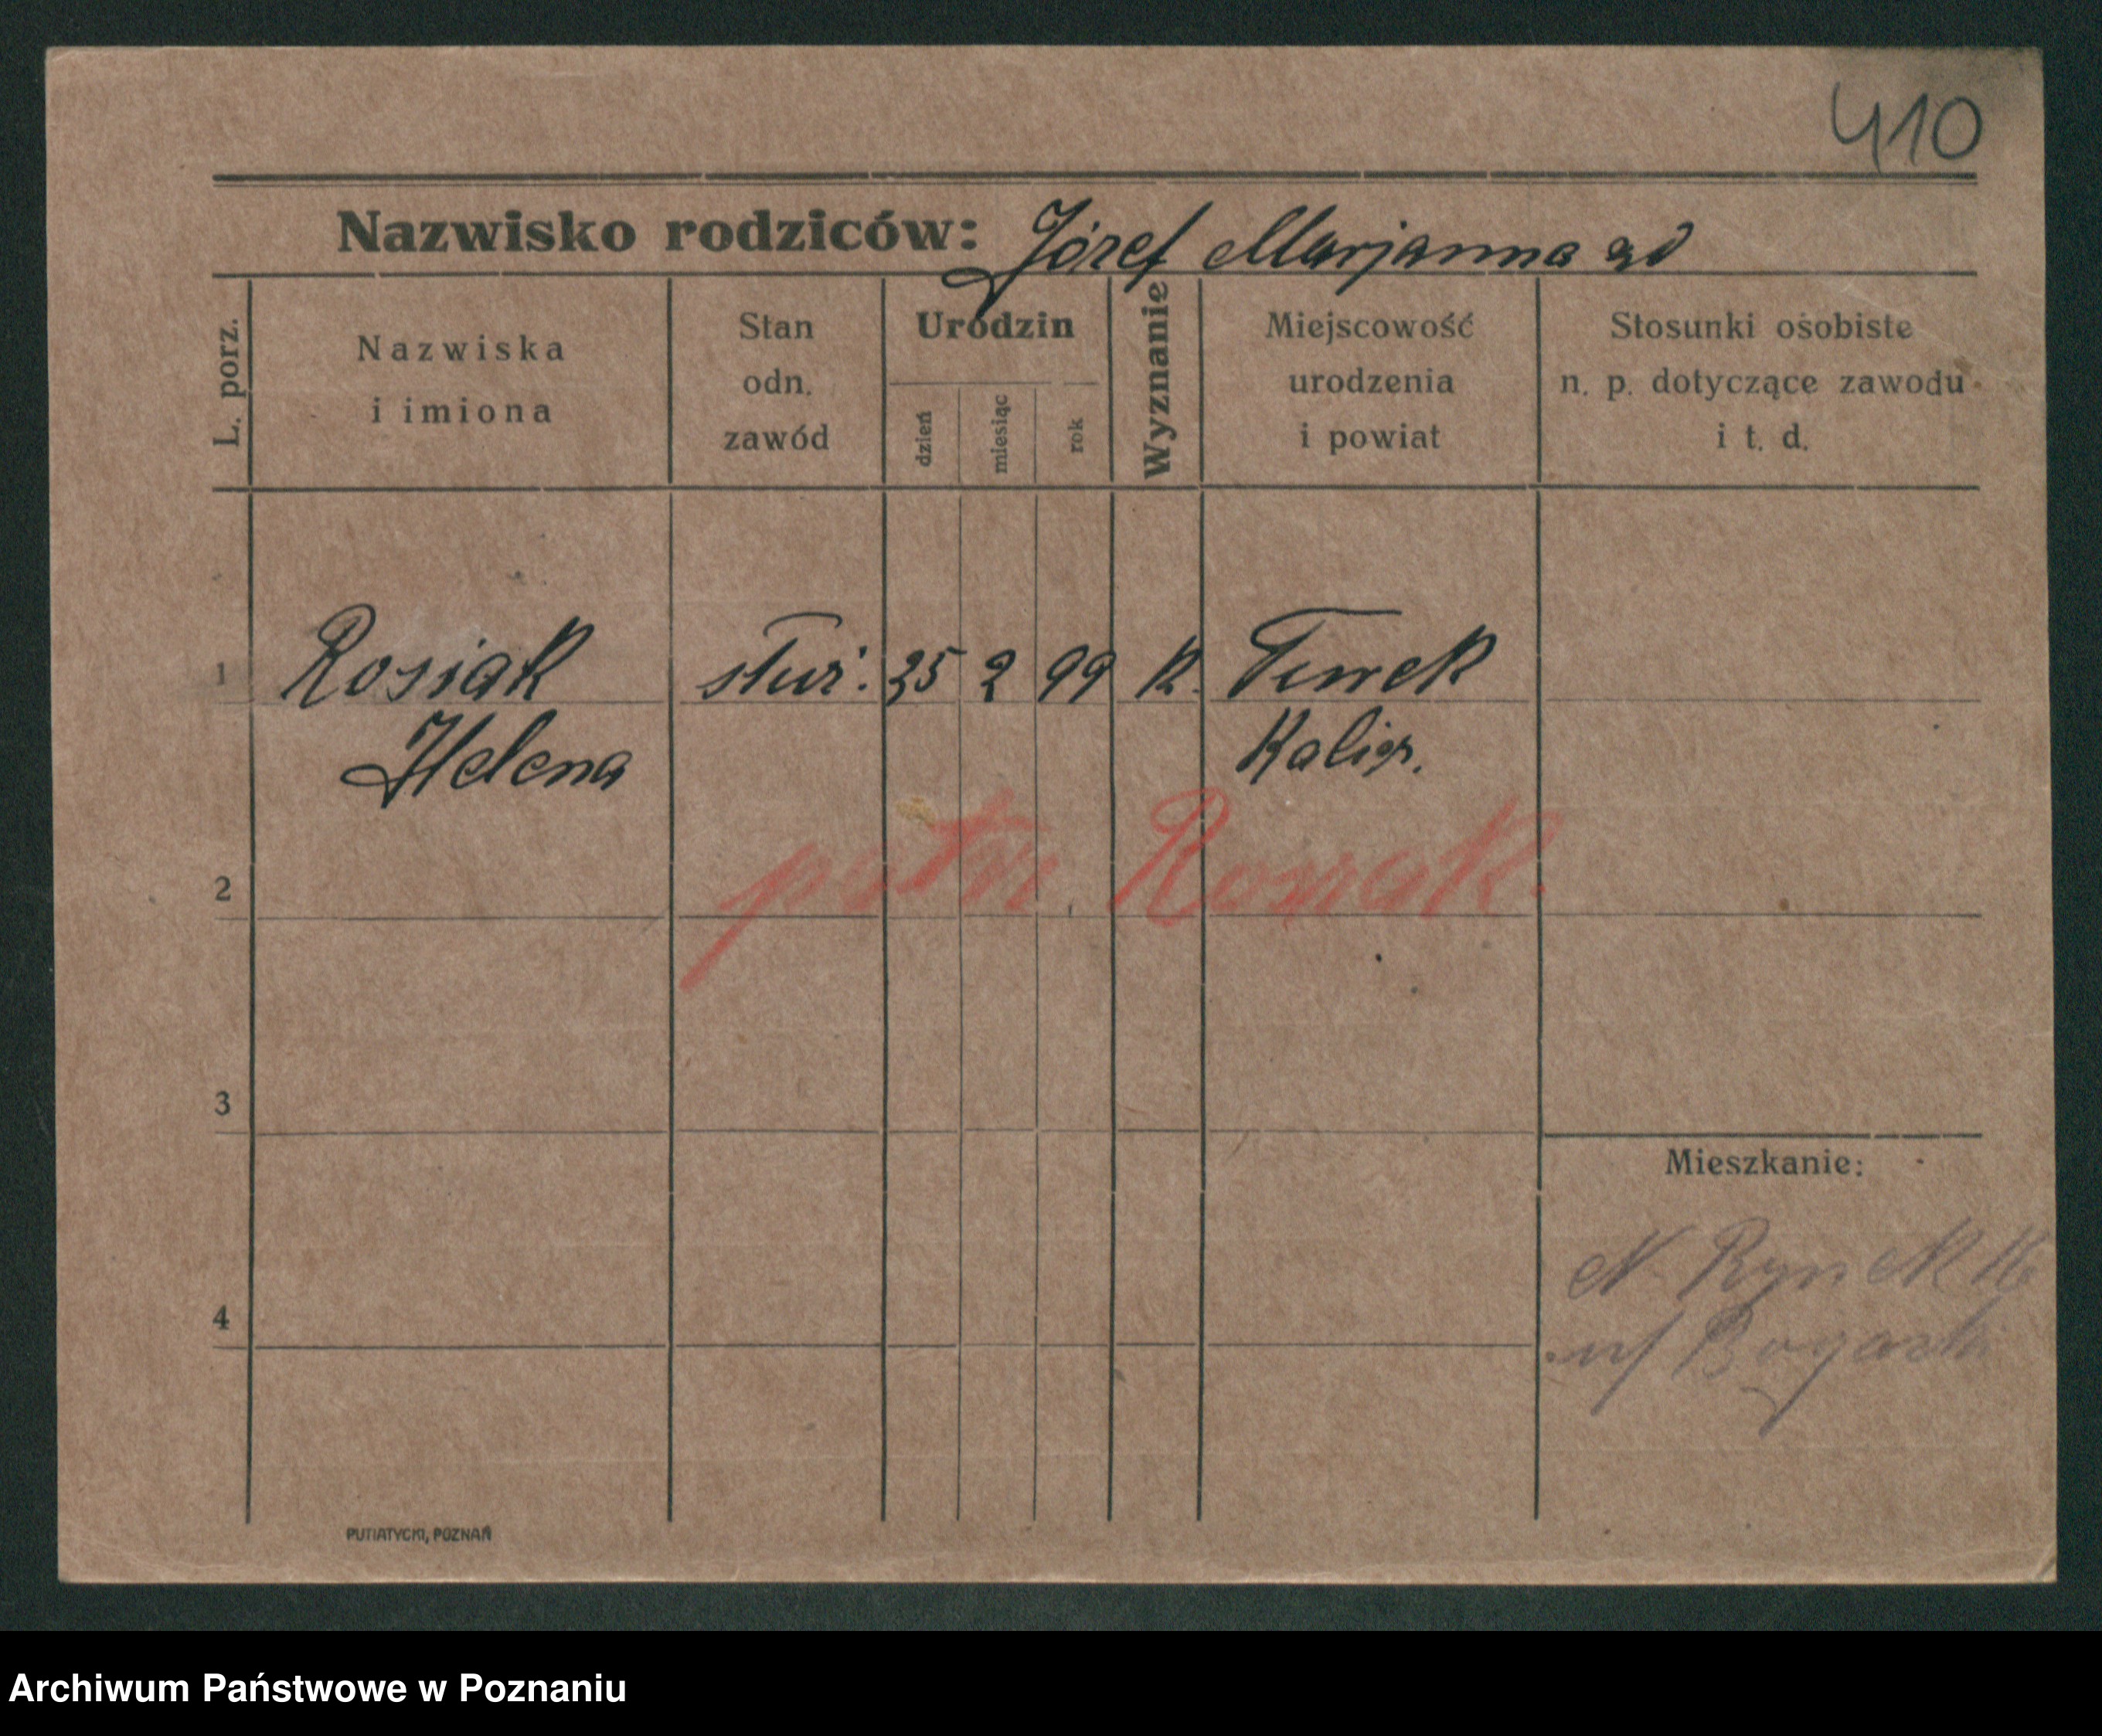 410
Nazwisko rodziców: Józef Marjanna
L. porz.
Nazwiska
i imiona
Stan
odn.
zawód
Urodzin
dzień
miesiąc
rok
Wyznanie
Miejscowość
urodzenia
i powiat
Stosunki osobiste
n. p. dotyczące zawodu
i t. d.
1 Rosiak służ. 25 2 99 K. Turek
Helena Kalisz.
2 patrz Rossak.
3
Mieszkanie:
N. Rynek
4
PUTIATYCKI, POZNAŃ
Archiwum Państwowe w Poznaniu